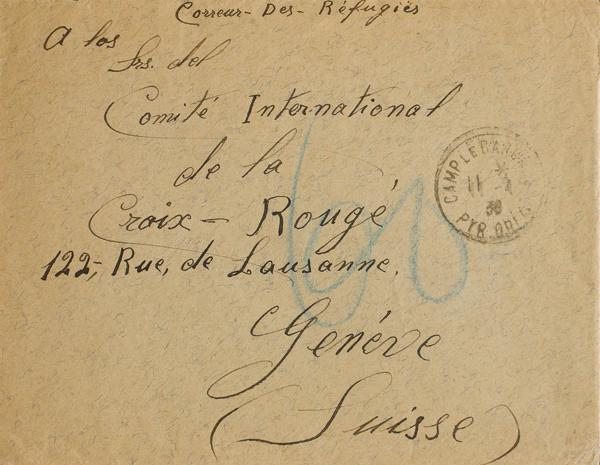 Correur-Des-Réfugiés
A los
Srs. del
Comité International
de la
Croix-Rougé
122, Rue, de Lausanne,
Genéve
Suisse
60
CAMP LE BARCARES
11 - 
39
PYR. ORIES